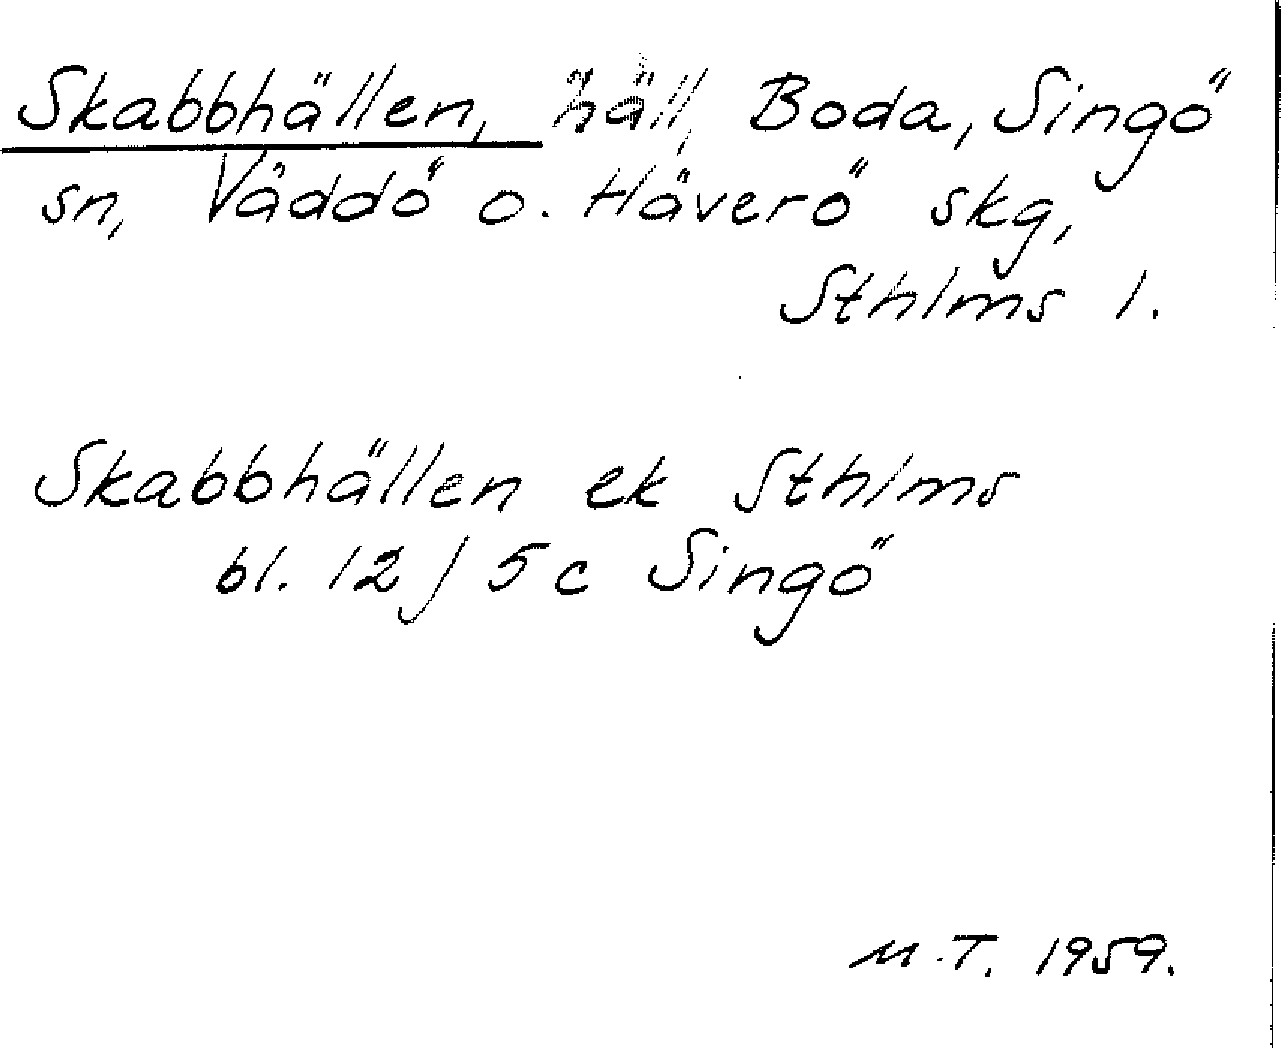 Skabbhällen, häll, Boda, Singö
sn, Väddö o. Häverö skg,
Sthlms l.
Skabbhällen ek Sthlms
bl. 12 / 5 c Singö
M.T. 1959.